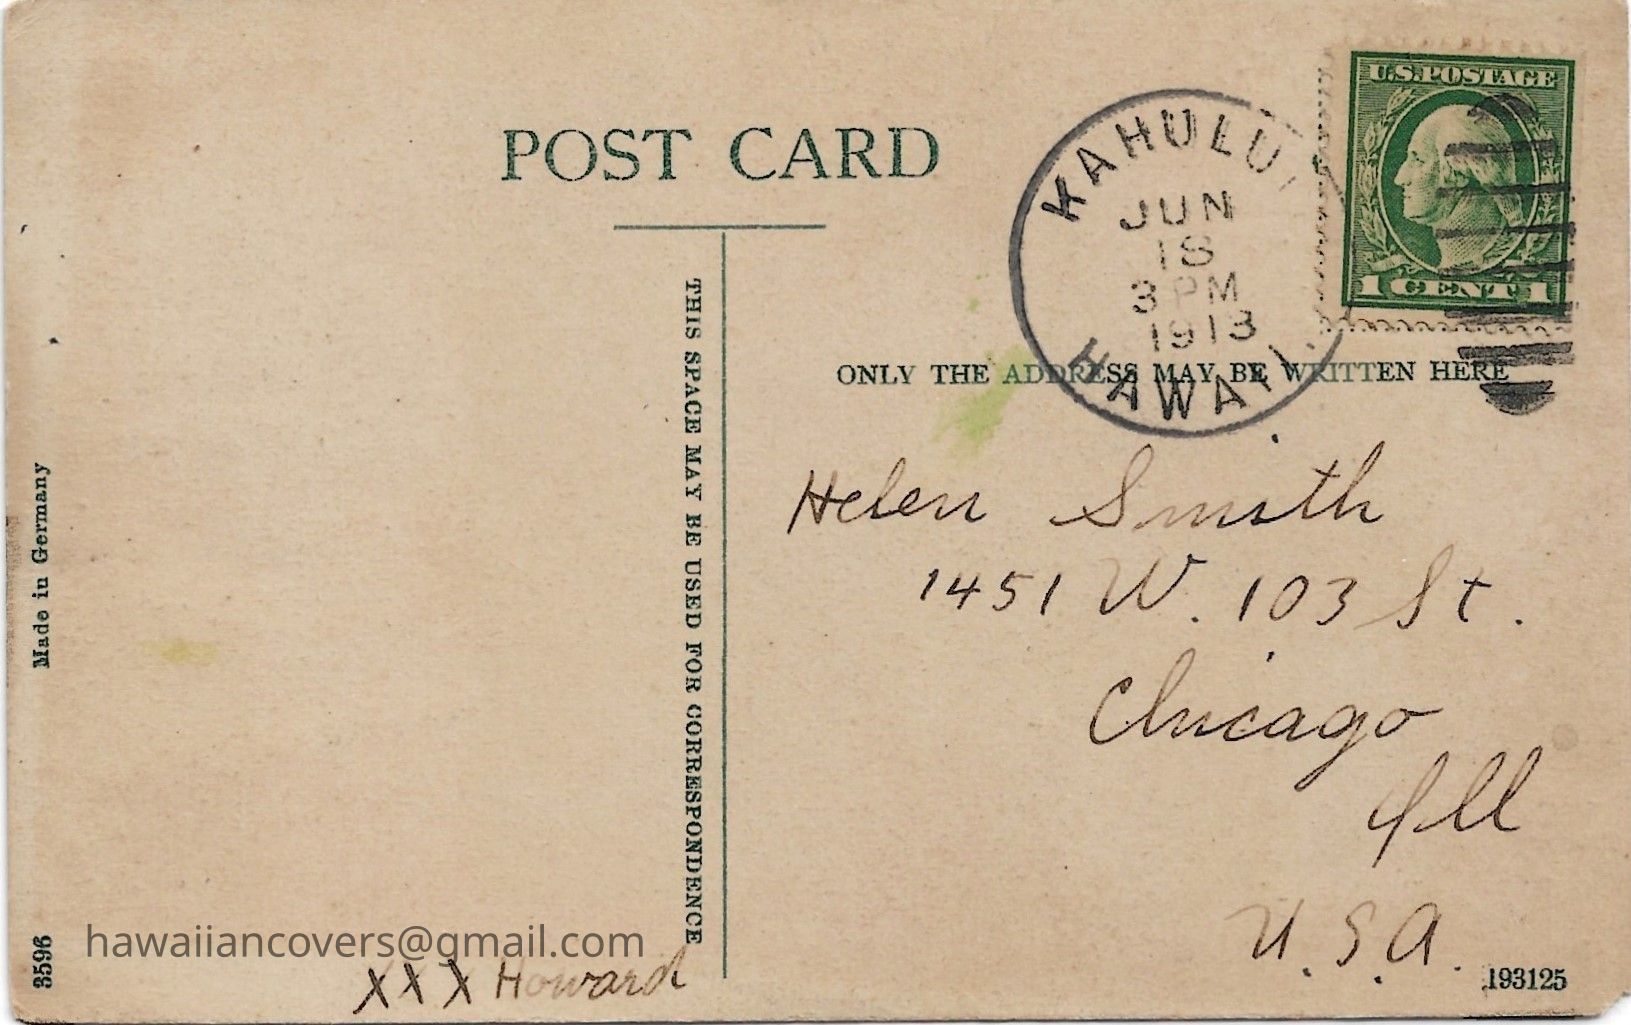 POST CARD
U.S.POSTAGE
1 CENT 1
KAHULUI
JUN
18
3 PM
1913
HAWAII.
THIS SPACE MAY BE USED FOR CORRESPONDENCE
ONLY THE ADDRESS MAY BE WRITTEN HERE
Helen Smith
1451 W. 103 St.
Chicago
Ill
U.S.A.
Made in Germany
3596
hawaiiancovers@gmail.com
XXX Howard
193125